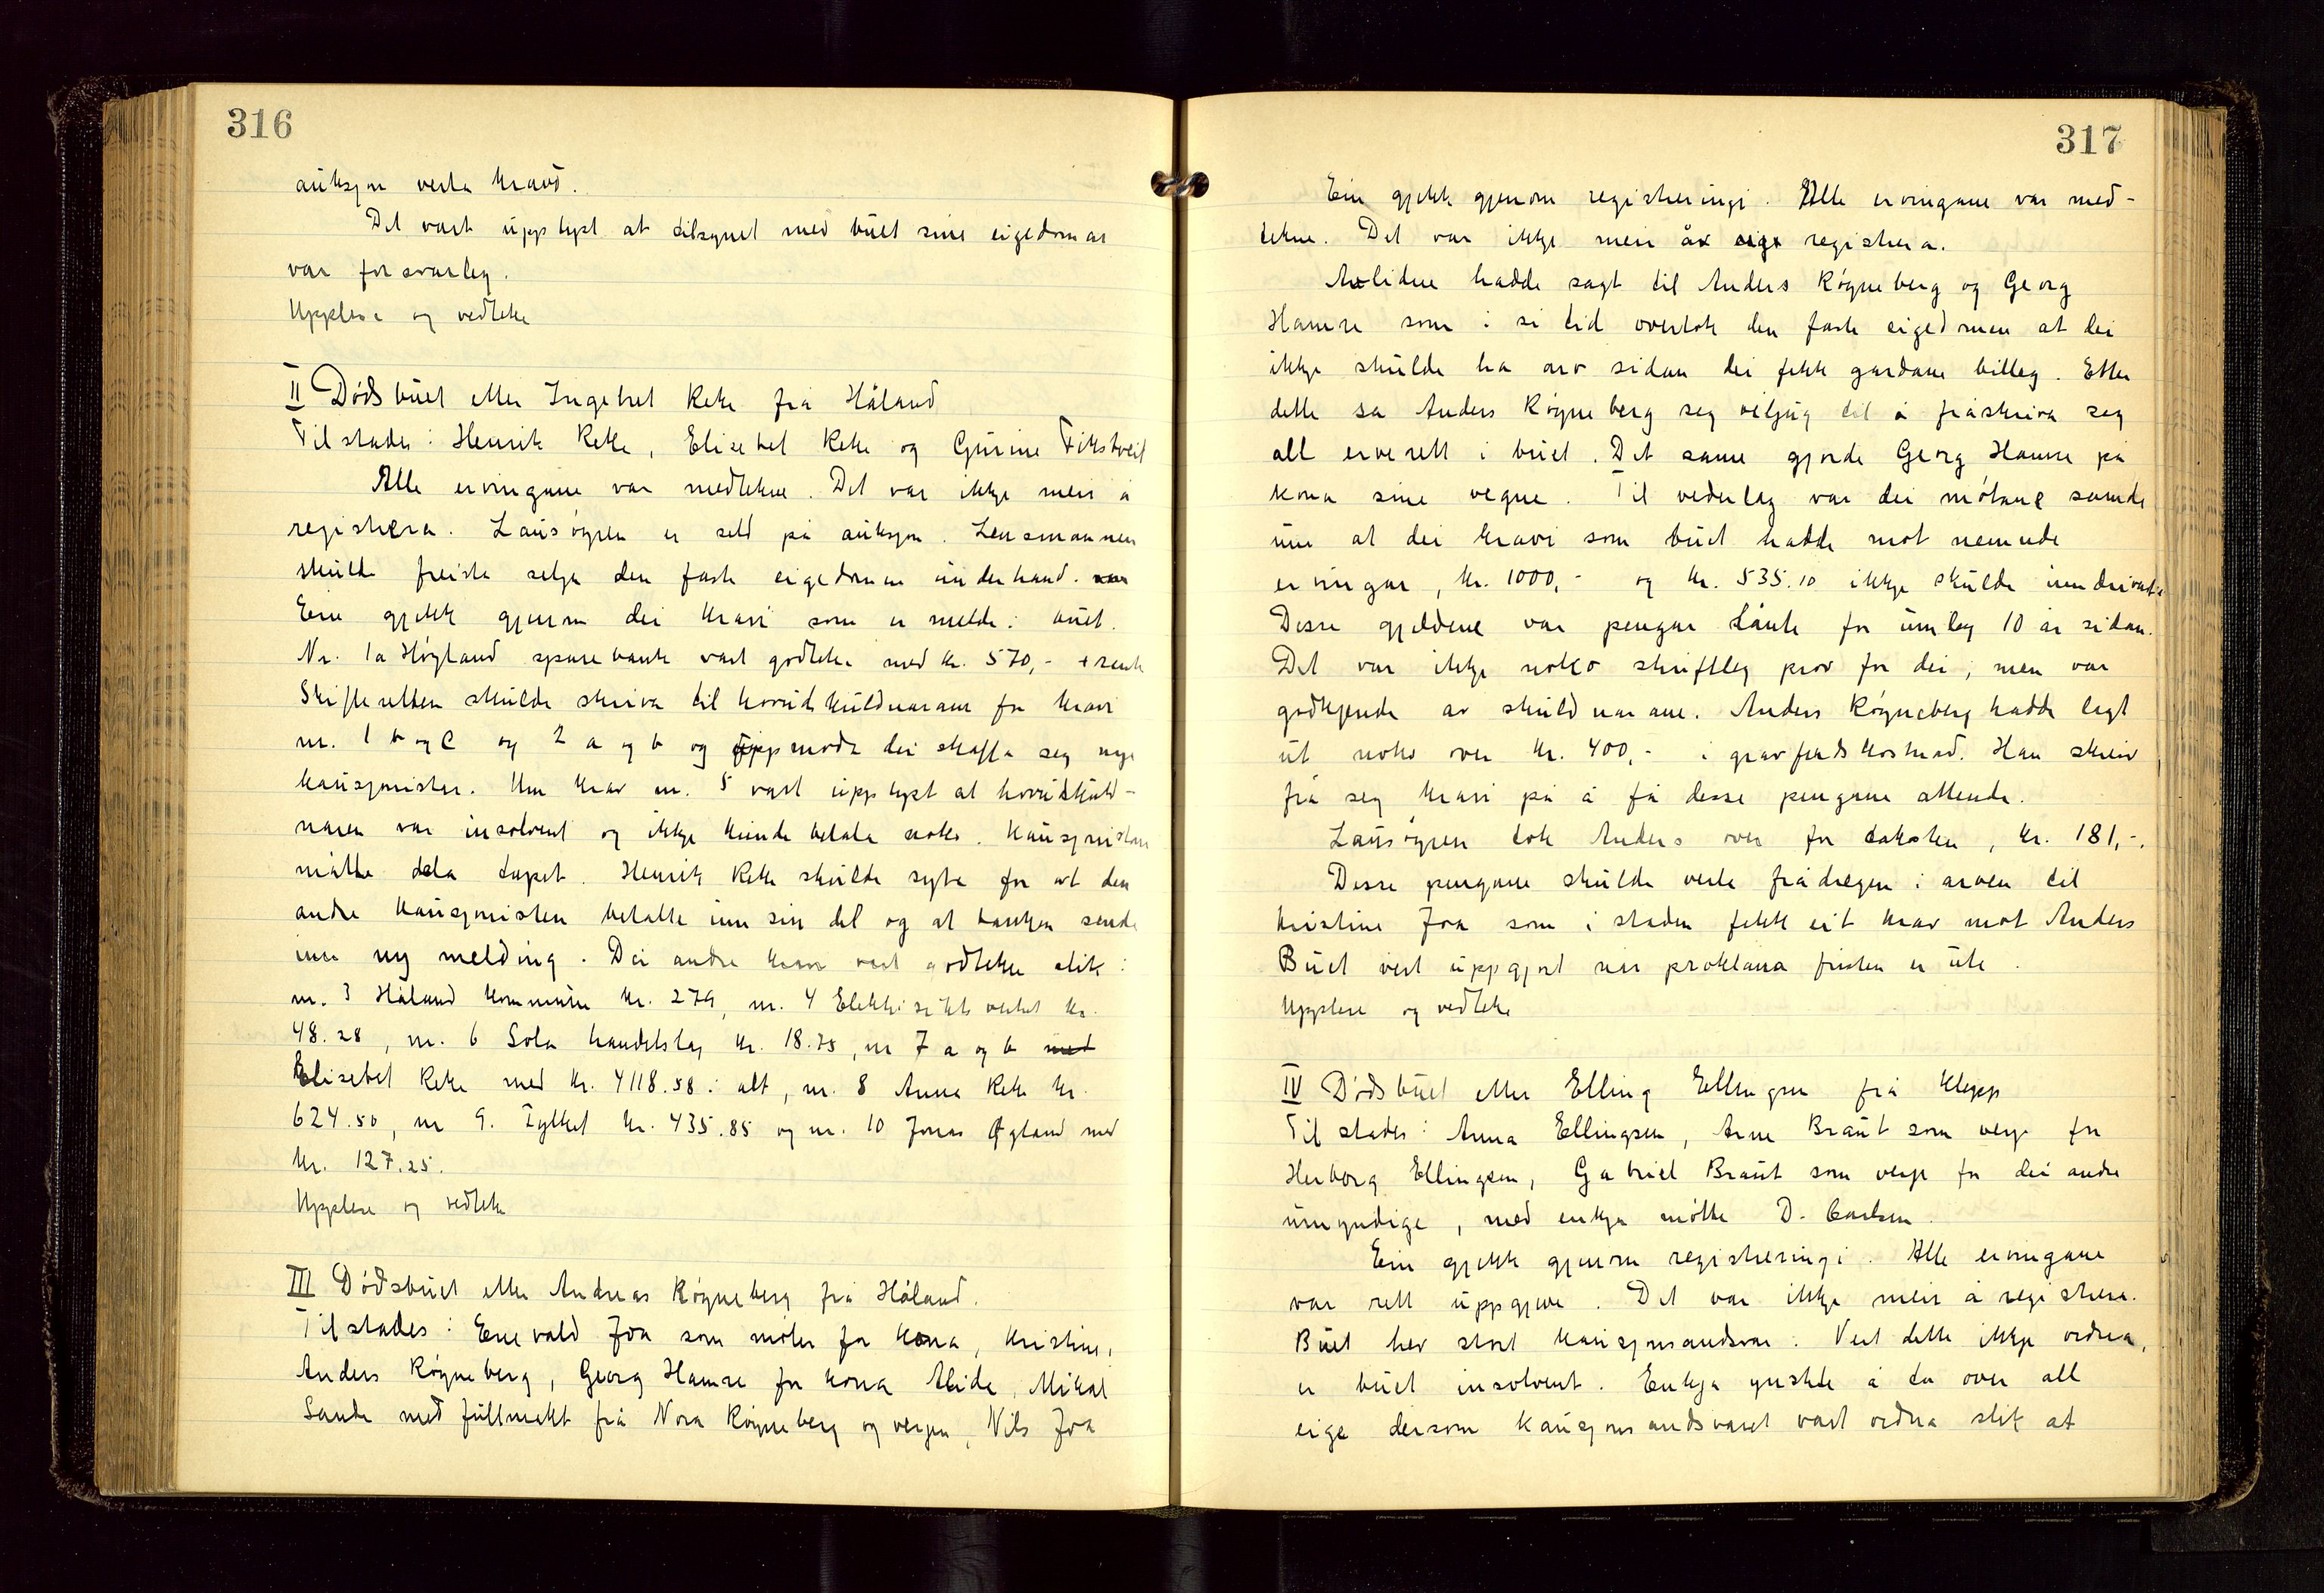 316
auksjon verta kravd.
Det vart upplyst at tilsynet med buet sine eigedomar
var forsvarleg.
Upplese og vedteke
II Dødsbuet etter Ingebret Reke frå Håland
Tilstades: Henrik Reke, Elisebet Reke og Gurine Tikstveit
Alle ervingane var medtekne. Det var ikkje meir å
registrera. Lausøyren er seld på auksjon. Lensmannen
skulde freista selja den faste eigedomen underhand.
Ein gjekk gjenom dei kravi som er melde i buet.
Nr. 1a Høyland sparebank vart godteke med kr. 570,- + rente
Skifteretten skulde skriva til hovudskuldnarane for kravi
nr. 1 b og c og 2 a og b og uppmoda dei skaffa seg nye
kausjonistar. Um krav nr. 5 vart upplyst at hovudskuld-
naren var insolvent og ikkje kunde betala noko. Kausjonistane
måtte dela tapet. Henrik Reke skulde syta for at den
andre kausjonisten betalte inn sin del og at banken sende
inn ny melding. Dei andre kravi vart godtekne slik:
nr. 3 Håland kommune kr. 279, nr. 4 Elektrisitetsverket kr.
48.28, nr. 6 Sola handelslag kr. 18.75, nr 7 a og b med
Elisebet Reke med kr. 4118.58 i alt, nr. 8 Anna Reke kr.
624.50, nr 9. Fylket kr. 435.85 og nr. 10 Jonas Øgland med
kr. 127.25.
Upplese og vedteke
III Dødsbuet etter Andreas Røyneberg frå Håland.
Tilstades: Enevald Joa som møter for kona, Kristine,
Anders Røyneberg, Georg Hamre for kona Alida, Mikal
Sande med fullmakt frå Nora Røyneberg og verjen, Nils Joa
317
Ein gjekk gjenom registreringi. Alle ervingane var med-
tekne. Det var ikkje meir å registrera.
Avlidne hadde sagt til Anders Røyneberg og Georg
Hamre som i si tid overtok den faste eigedomen at dei
ikkje skulde ha arv sidan dei fekk gardane billeg. Etter
dette sa Anders Røyneberg seg viljug til å fråskriva seg
all erverett i buet. Det same gjorde Georg Hamre på
kona sine vegne. Til vederlag var dei møtane samde
um at dei kravi som buet hadde mot nemnde
ervingar, kr. 1000,- og kr. 535.10 ikkje skulde inndrivast.
Desse gjeldene var pengar lånte for umlag 10 år sidan.
Det var ikkje noko skriftleg prov for dei, men var
godkjende av skuldnarane. Anders Røyneberg hadde lagt
ut noko over kr. 400,- i gravferdskostnad. Han skreiv
frå seg kravi på å få desse pengane attende.
Lausøyren tok Anders over for taksten, kr. 181,-.
Desse pengane skulde verte frådregne i arven til
Kristine Joa som i staden fekk eit krav mot Anders
Buet vert uppgjort når proklama fristen er ute.
Upplese og vedteke
IV Dødsbuet etter Elling Ellingsen frå Klepp
Tilstades: Anna Ellingsen, Arne Braut som verje for
Herborg Ellingsen, Gabriel Braut som verje for dei andre
umyndige, med enkja møtte D. Carlsen.
Ein gjekk gjenom registreringi. Alle ervingane
var rett uppgjevne. Det var ikkje meir å registrera.
Buet hev stort kausjonsandsvar. Vert dette ikkje ordna,
er buet insolvent. Enkja ynskte å ta over all
eige dersom kausjonsandsvaret vart ordna slik at